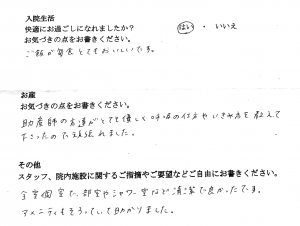 入院生活
快適にお過ごしになれましたか？ はい ・ いいえ
お気づきの点をお書きください。
ご飯が毎食とてもおいしいです。
お産
お気づきの点をお書きください。
助産師の方達がとても優しく呼吸の仕方やいきみ方を教えて
下さったので頑張れました。
その他
スタッフ、院内施設に関するご指摘やご要望などご自由にお書きください。
全室個室で、部屋やシャワー室など清潔で良かったです。
アメニティもそろっていて助かりました。